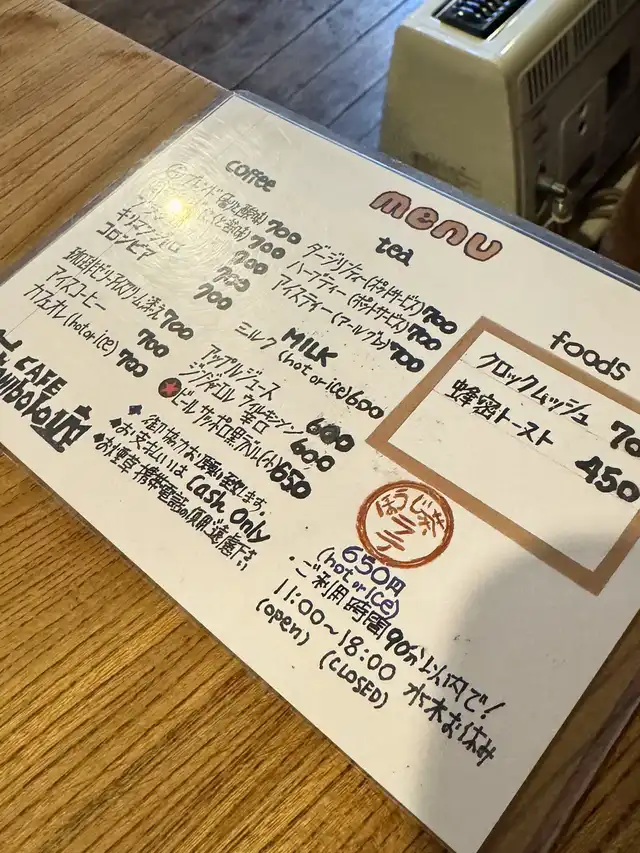 menu
coffee
ブレンド
700
700
キリマンジャロ 700
コロンビア 700
700
アイスコーヒー 700
カフェオレ (hot or ice) 700
700
tea
ダージリンティー (ポットサービス) 700
ハーブティー (ポットサービス) 700
アイスティー (アールグレ) 700
MILK
ミルク (hot or ice) 600
アップルジュース 600
ジンジャエール ウィルキンソン 辛口 600
★ビール サッポロ黒ラベル(小) 650
foods
クロックムッシュ 70
蜂蜜トースト 450
ほうじ茶ラテ
650円
(hot or ice)
・ご利用時間90分以内で!
11:00~18:00 水木お休み
(open) (CLOSED)
◆御協力お願い致します。
◆お支払いは Cash Only
◆お煙草・携帯電話の使用ご遠慮下さい
CAFE